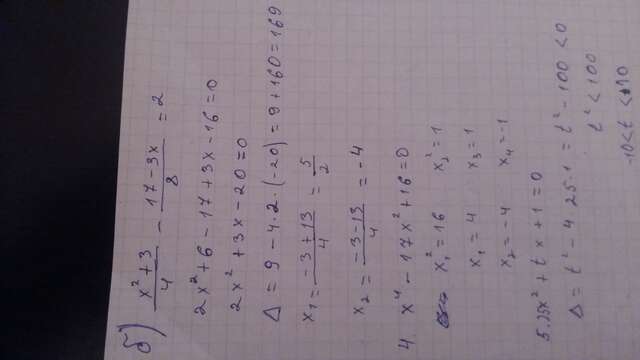 б) (x² + 3)/4 − (17 − 3x)/8 = 2
2x² + 6 − 17 + 3x − 16 = 0
2x² + 3x − 20 = 0
Δ = 9 − 4·2·(−20) = 9 + 160 = 169
x₁ = (−3 + 13)/4 = 5/2
x₂ = (−3 − 13)/4 = −4
4 x⁴ − 17x² + 16 = 0
x₁² = 16 x₂² = 1
x₁ = 4 x₃ = 1
x₂ = −4 x₄ = −1
5. 25x² + tx + 1 = 0
Δ = t² − 4 25·1 = t² − 100 < 0
t² < 100
−10 < t < 10